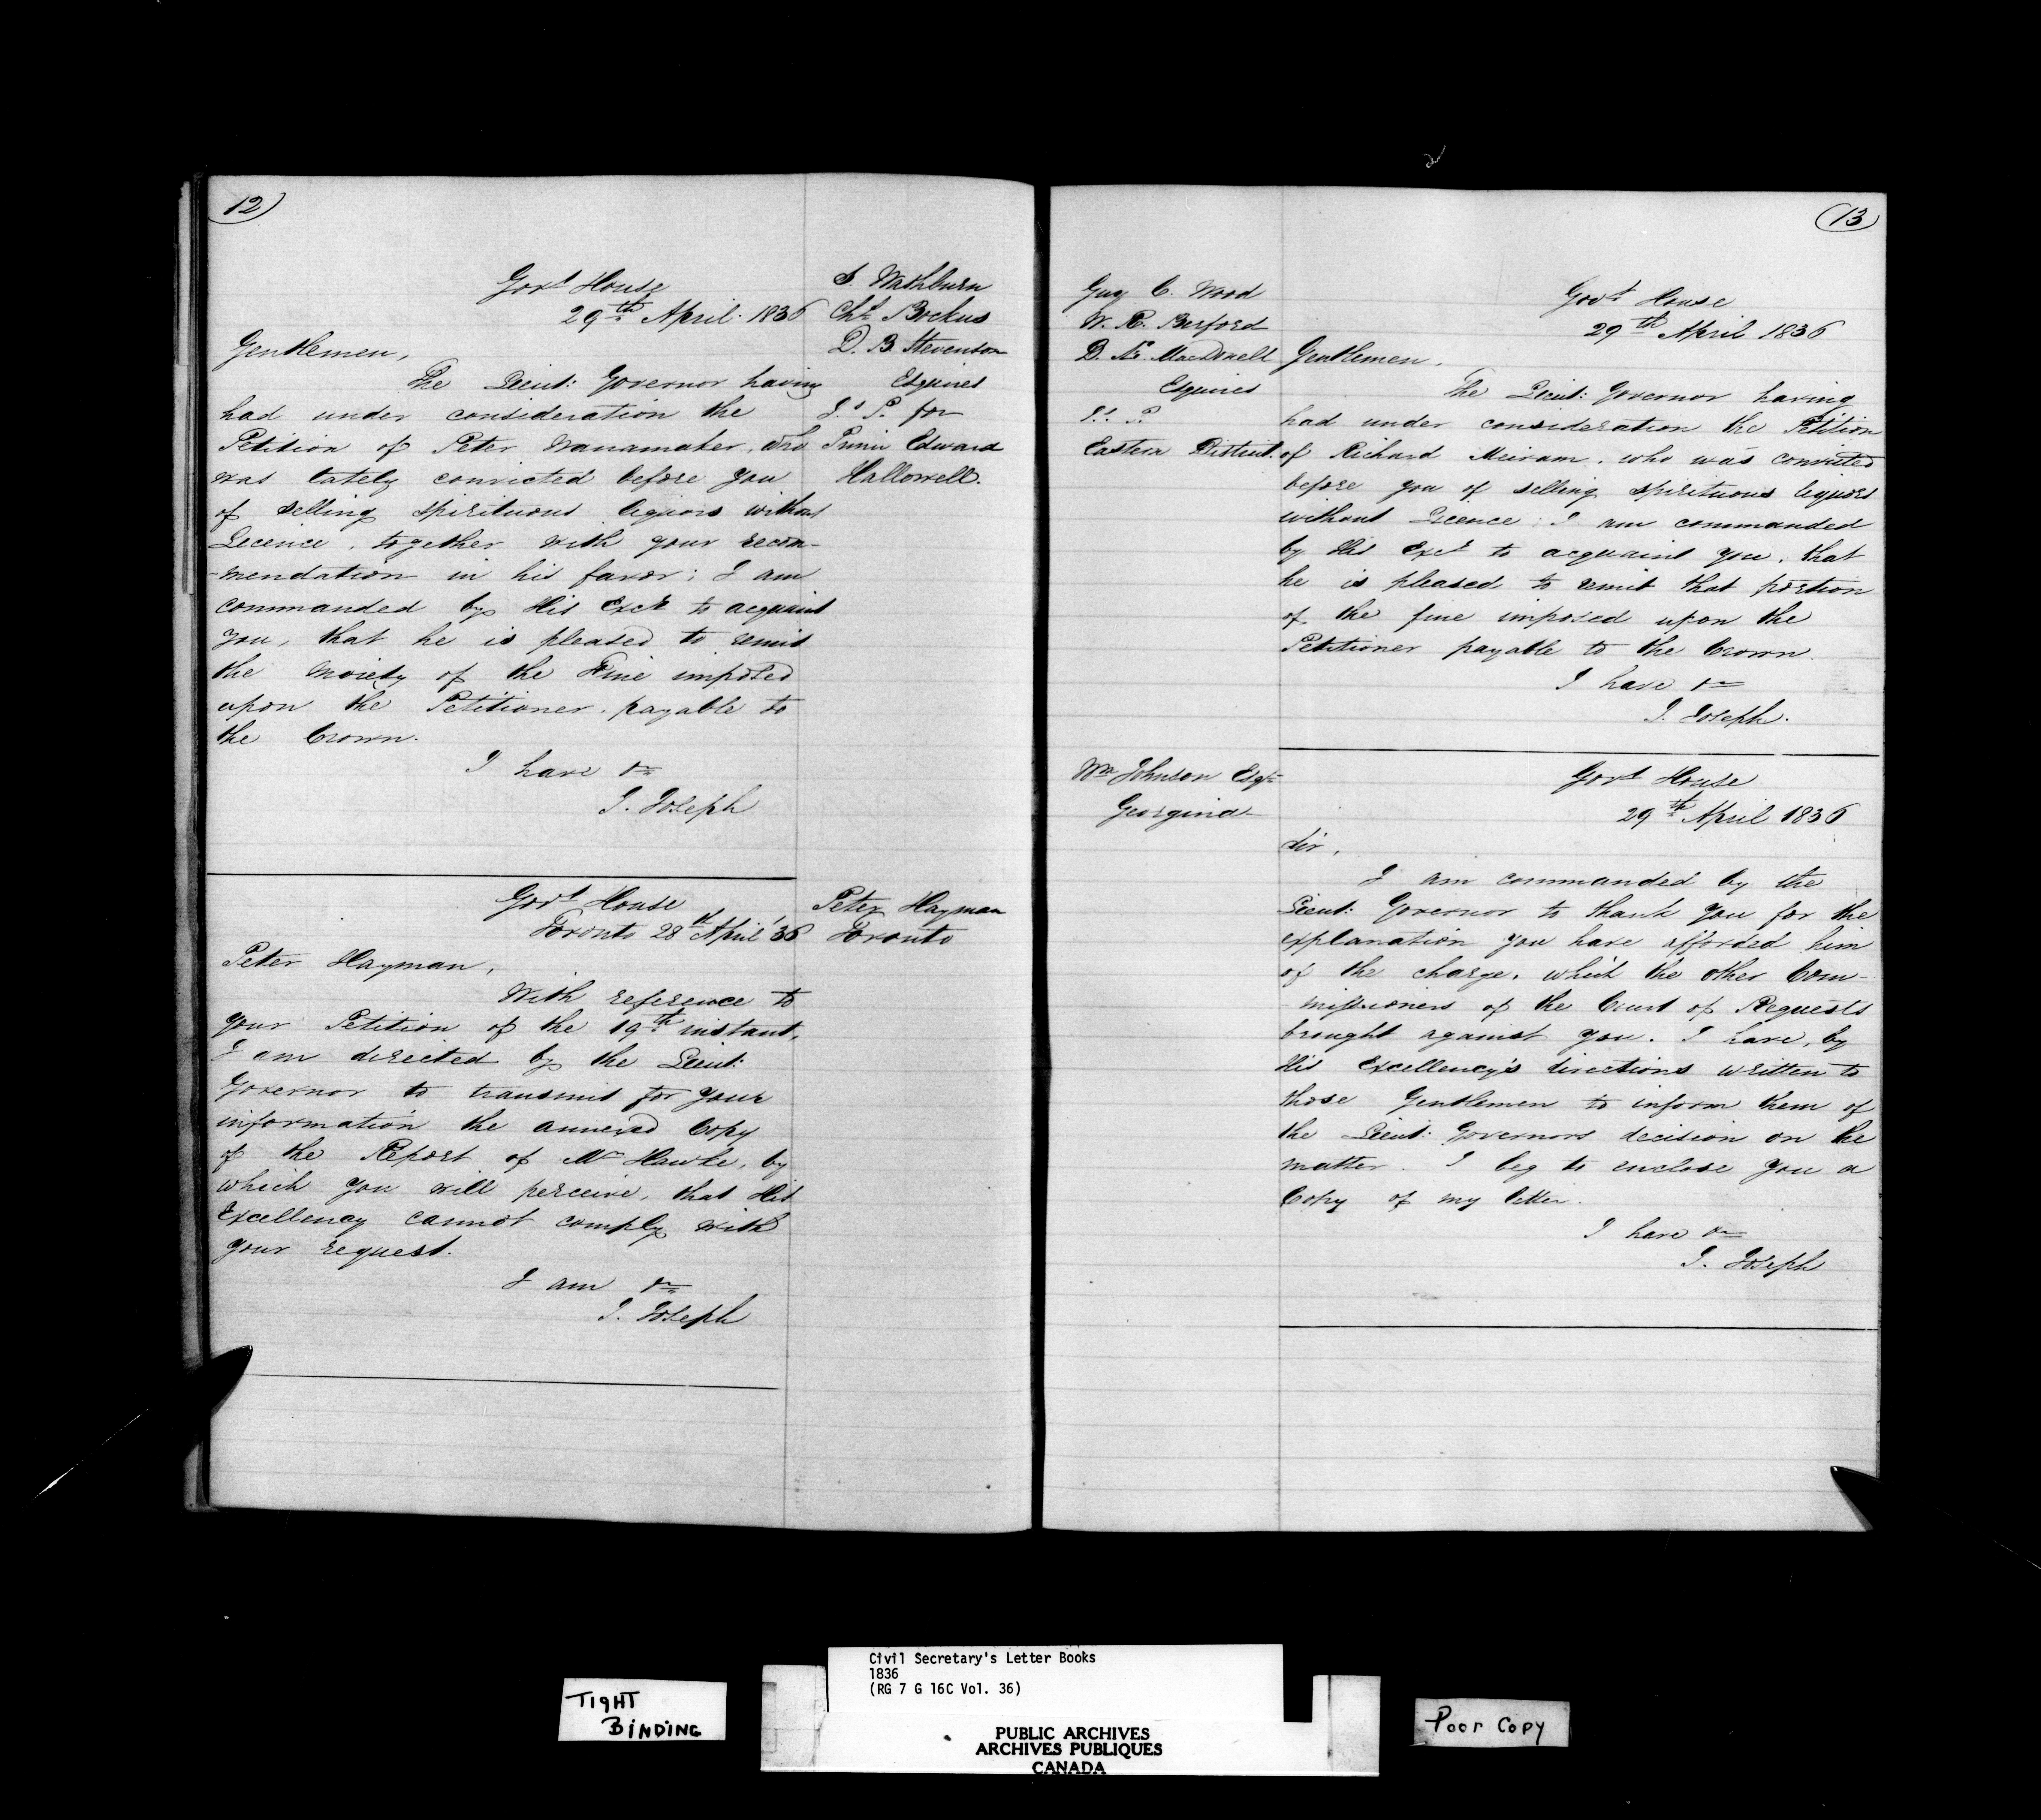 12
Govt House
29th April 1836
Gentlemen,
The Lieut: Governor having
had under consideration the
Petition of Peter Wanamaker, who
was lately convicted before you
of selling spirituous liquors without
Licence, together with your recom-
-mendation in his favor; I am
commanded by His Excy to acquaint
you, that he is pleased to remit
the moiety of the Fine imposed
upon the Petitioner, payable to
the Crown.
I have &c
J. Joseph
S. Washburn
Chs Bockus
D. B. Stevenson
Esquires
J.s P. for
Prince Edward
Hallowell.
Govt House
Toronto 28th April '36
Peter Hayman,
With reference to
your Petition of the 19th instant,
I am directed by the Lieut:
Governor to transmit for your
information the annexed Copy
of the Report of Mr Hawke, by
which you will perceive, that His
Excellency cannot comply with
your request.
I am &c
J. Joseph
Peter Hayman
Toronto
13
Guy C. Wood
W. R.
D. Æ. MacDonell
Esquires
J.s P.
Eastern District.
Govt House
29th April 1836
Gentlemen,
The Lieut: Governor having
had under consideration the Petition
of Richard who was convicted
before you of selling spirituous liquors
without Licence; I am commanded
by His Excy to acquaint you, that
he is pleased to remit that portion
of the fine imposed upon the
Petitioner payable to the Crown.
I have &c
J. Joseph.
Wm Johnson Esqr
Georgina
Govt House
29th April 1836
Sir,
I am commanded by the
Lieut: Governor to thank you for the
explanation you have afforded him
of the charge, which the other Com-
-missioners of the Court of Requests
brought against you. I have, by
His Excellency's directions written to
those Gentlemen to inform them of
the Lieut: Governors decision on the
matter. I beg to enclose you a
Copy of my letter.
I have &c
J. Joseph
TIGHT
BINDING
Civil Secretary's Letter Books
1836
(RG 7 G 16C Vol. 36)
PUBLIC ARCHIVES
ARCHIVES PUBLIQUES
CANADA
Poor Copy